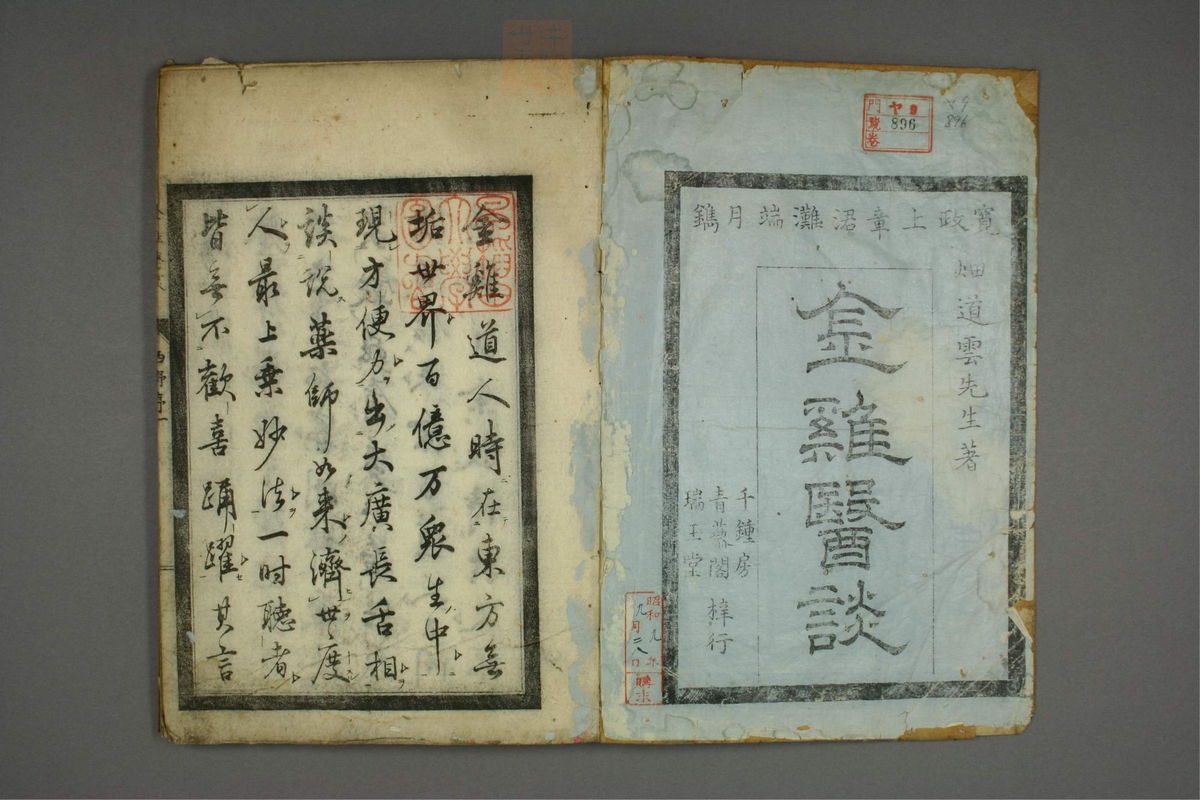 寛政上章涒灘端月鐫
畑道雲先生著
金雞醫談
千鍾房
青藜閣
瑞玉堂
梓行
門
ヤ9
896
卷
昭和九年
九月二八日
購求
金雞道人時在東方無
垢世界百億万衆生中
現方便力出大廣長舌相
談説薬師如来濟世度
人最上乗妙法一时聴者
皆無不歓喜踊躍其言